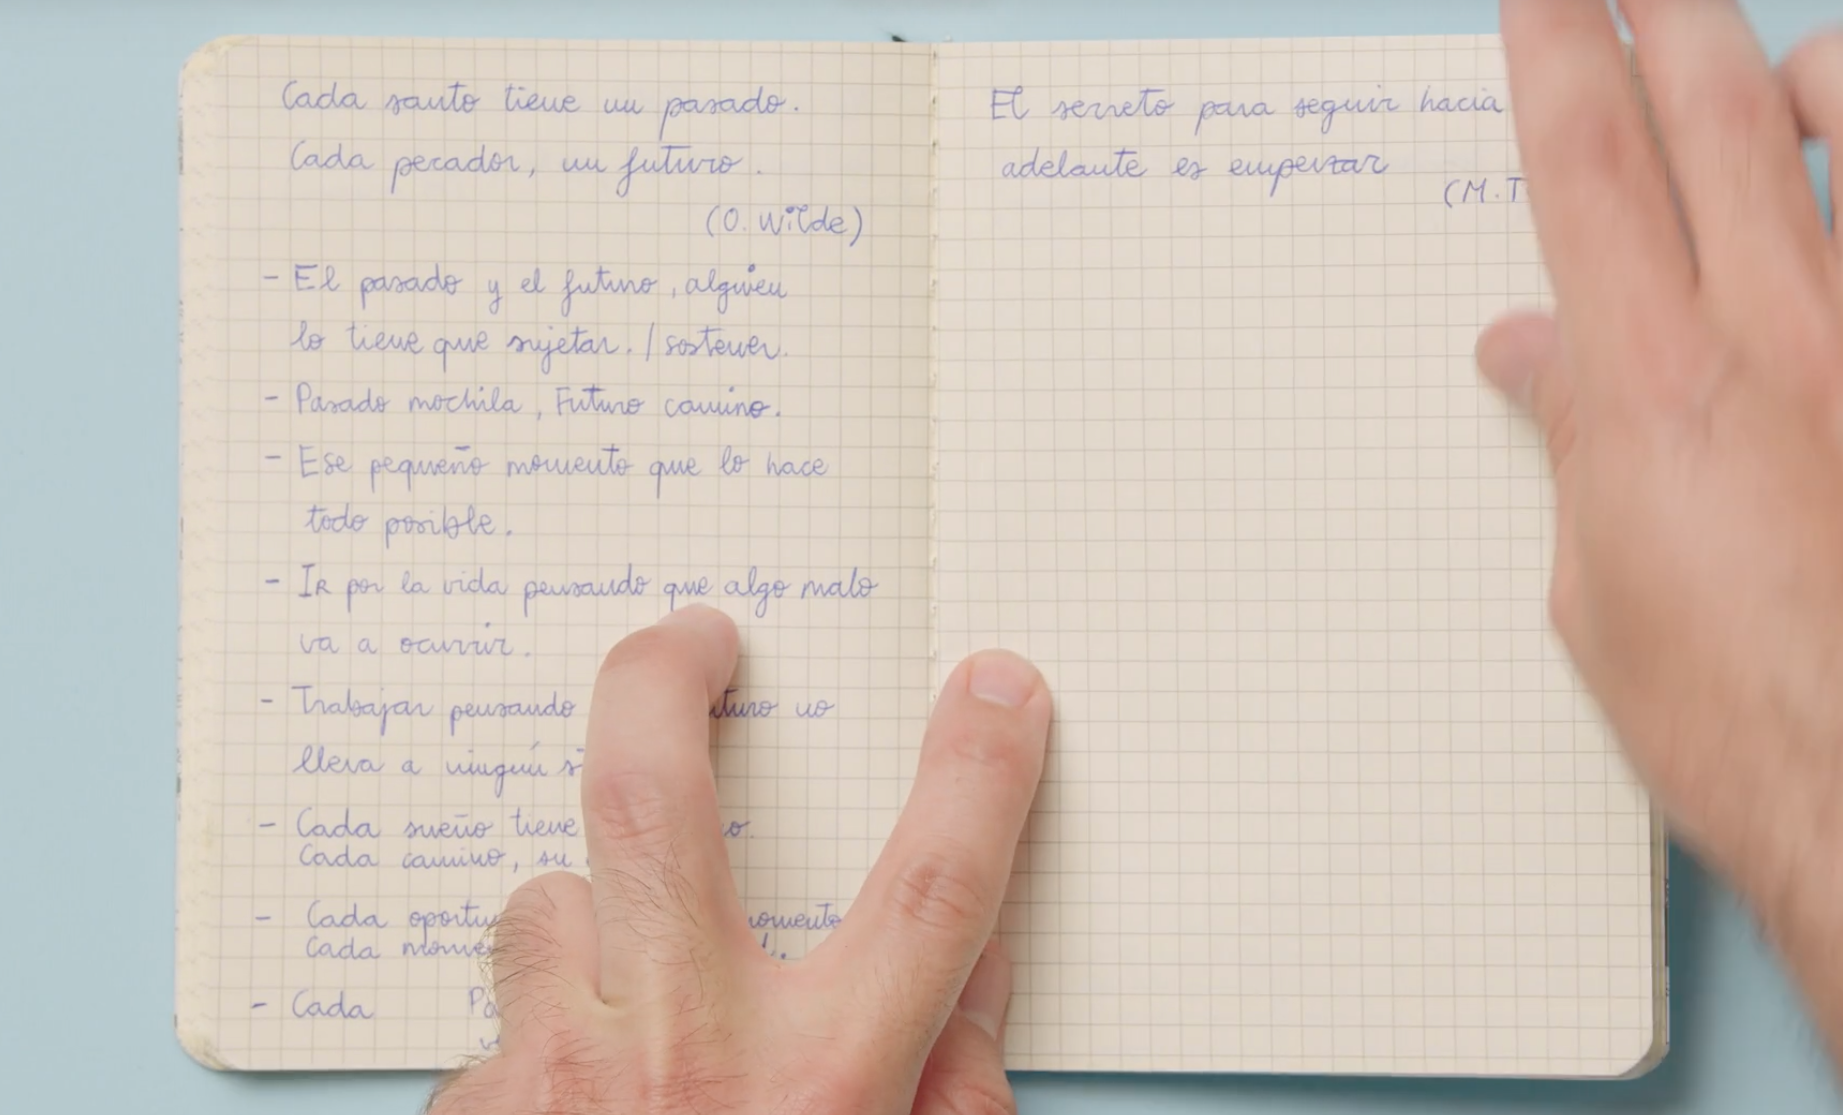 Cada santo tiene un pasado.
Cada pecador, un futuro.
(O. Wilde)
- El pasado y el futuro, alguien
lo tiene que sujetar. / sostener.
- Pasado mochila, Futuro camino.
- Ese pequeño momento que lo hace
todo posible.
- Ir por la vida pensando que algo malo
va a ocurrir.
- Trabajar pensando no
lleva a ningún
- Cada sueño tiene
Cada camino, su
- Cada
Cada
- Cada
El secreto para seguir hacia
adelante es empezar
(M. T